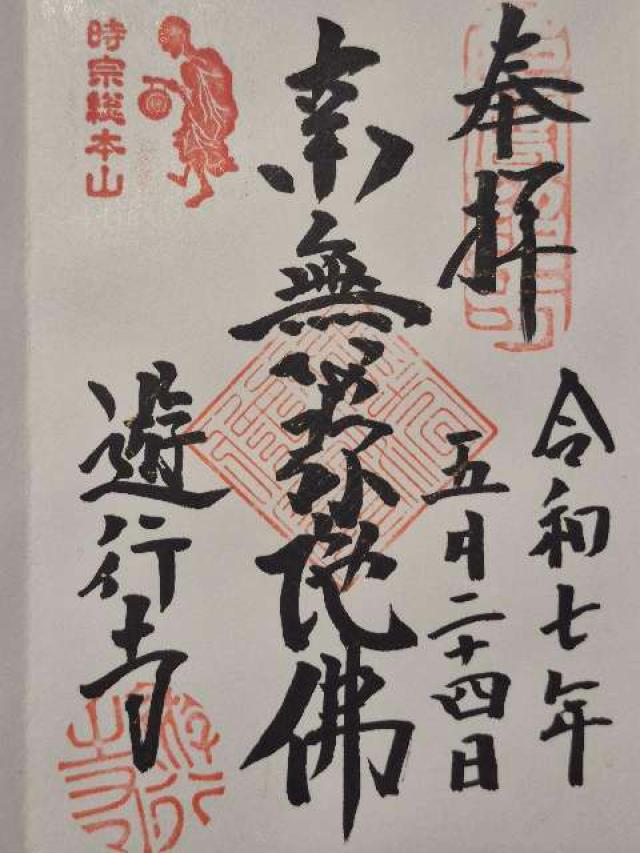 奉拝
令和七年
五月二十四日
南無阿弥陀佛
時宗総本山
遊行寺